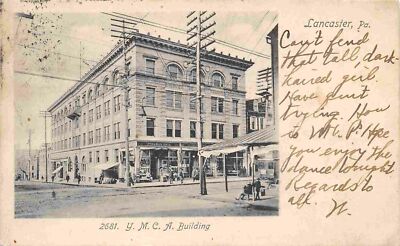 Lancaster, Pa.
Can't find
that tall, dark-
haired girl.
Have quit
trying. How
is Mr. P. Hope
you enjoy the
dance tonight
Regards to
all. N.
2681. Y. M. C. A. Building